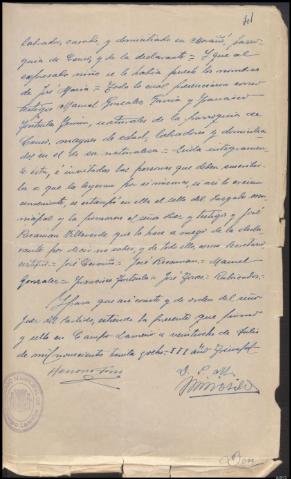 labrador, casado, y domiciliado en Moraña, parro-
quia de Cones, y de la declarante = Y que al
expresado niño se le había puesto los nombres
de José María = Todo lo cual presenciaron como
testigos Manuel Gonzalez y Francisco
Fontenla, naturales de la parroquia de
Cones, mayores de edad, labradores y domicilia-
dos en el de su naturaleza = Leída integramen-
te esta, é invitadas las personas que deben suscribir-
la a que la leyeran por si mismas, si asi lo creian
conveniente, se estampó en ella el sello del Juzgado mu-
nicipal y la firmaron el señor Juez y testigos y José
Rosamon Villaverde que lo hace a ruego de la decla-
rante por decir no saber, y de todo ello, como Secretario
certifico = José = José Rosamon = Manuel
Gonzalez = Francisco Fontenla = José = Rubricados =
Y para que asi conste y de orden del señor
Juez del Partido, extiendo la presente que firmo
y sello en Campo Lameiro a veintiocho de Julio
de mil novecientos treinta y ocho = III año Triunfal
Don